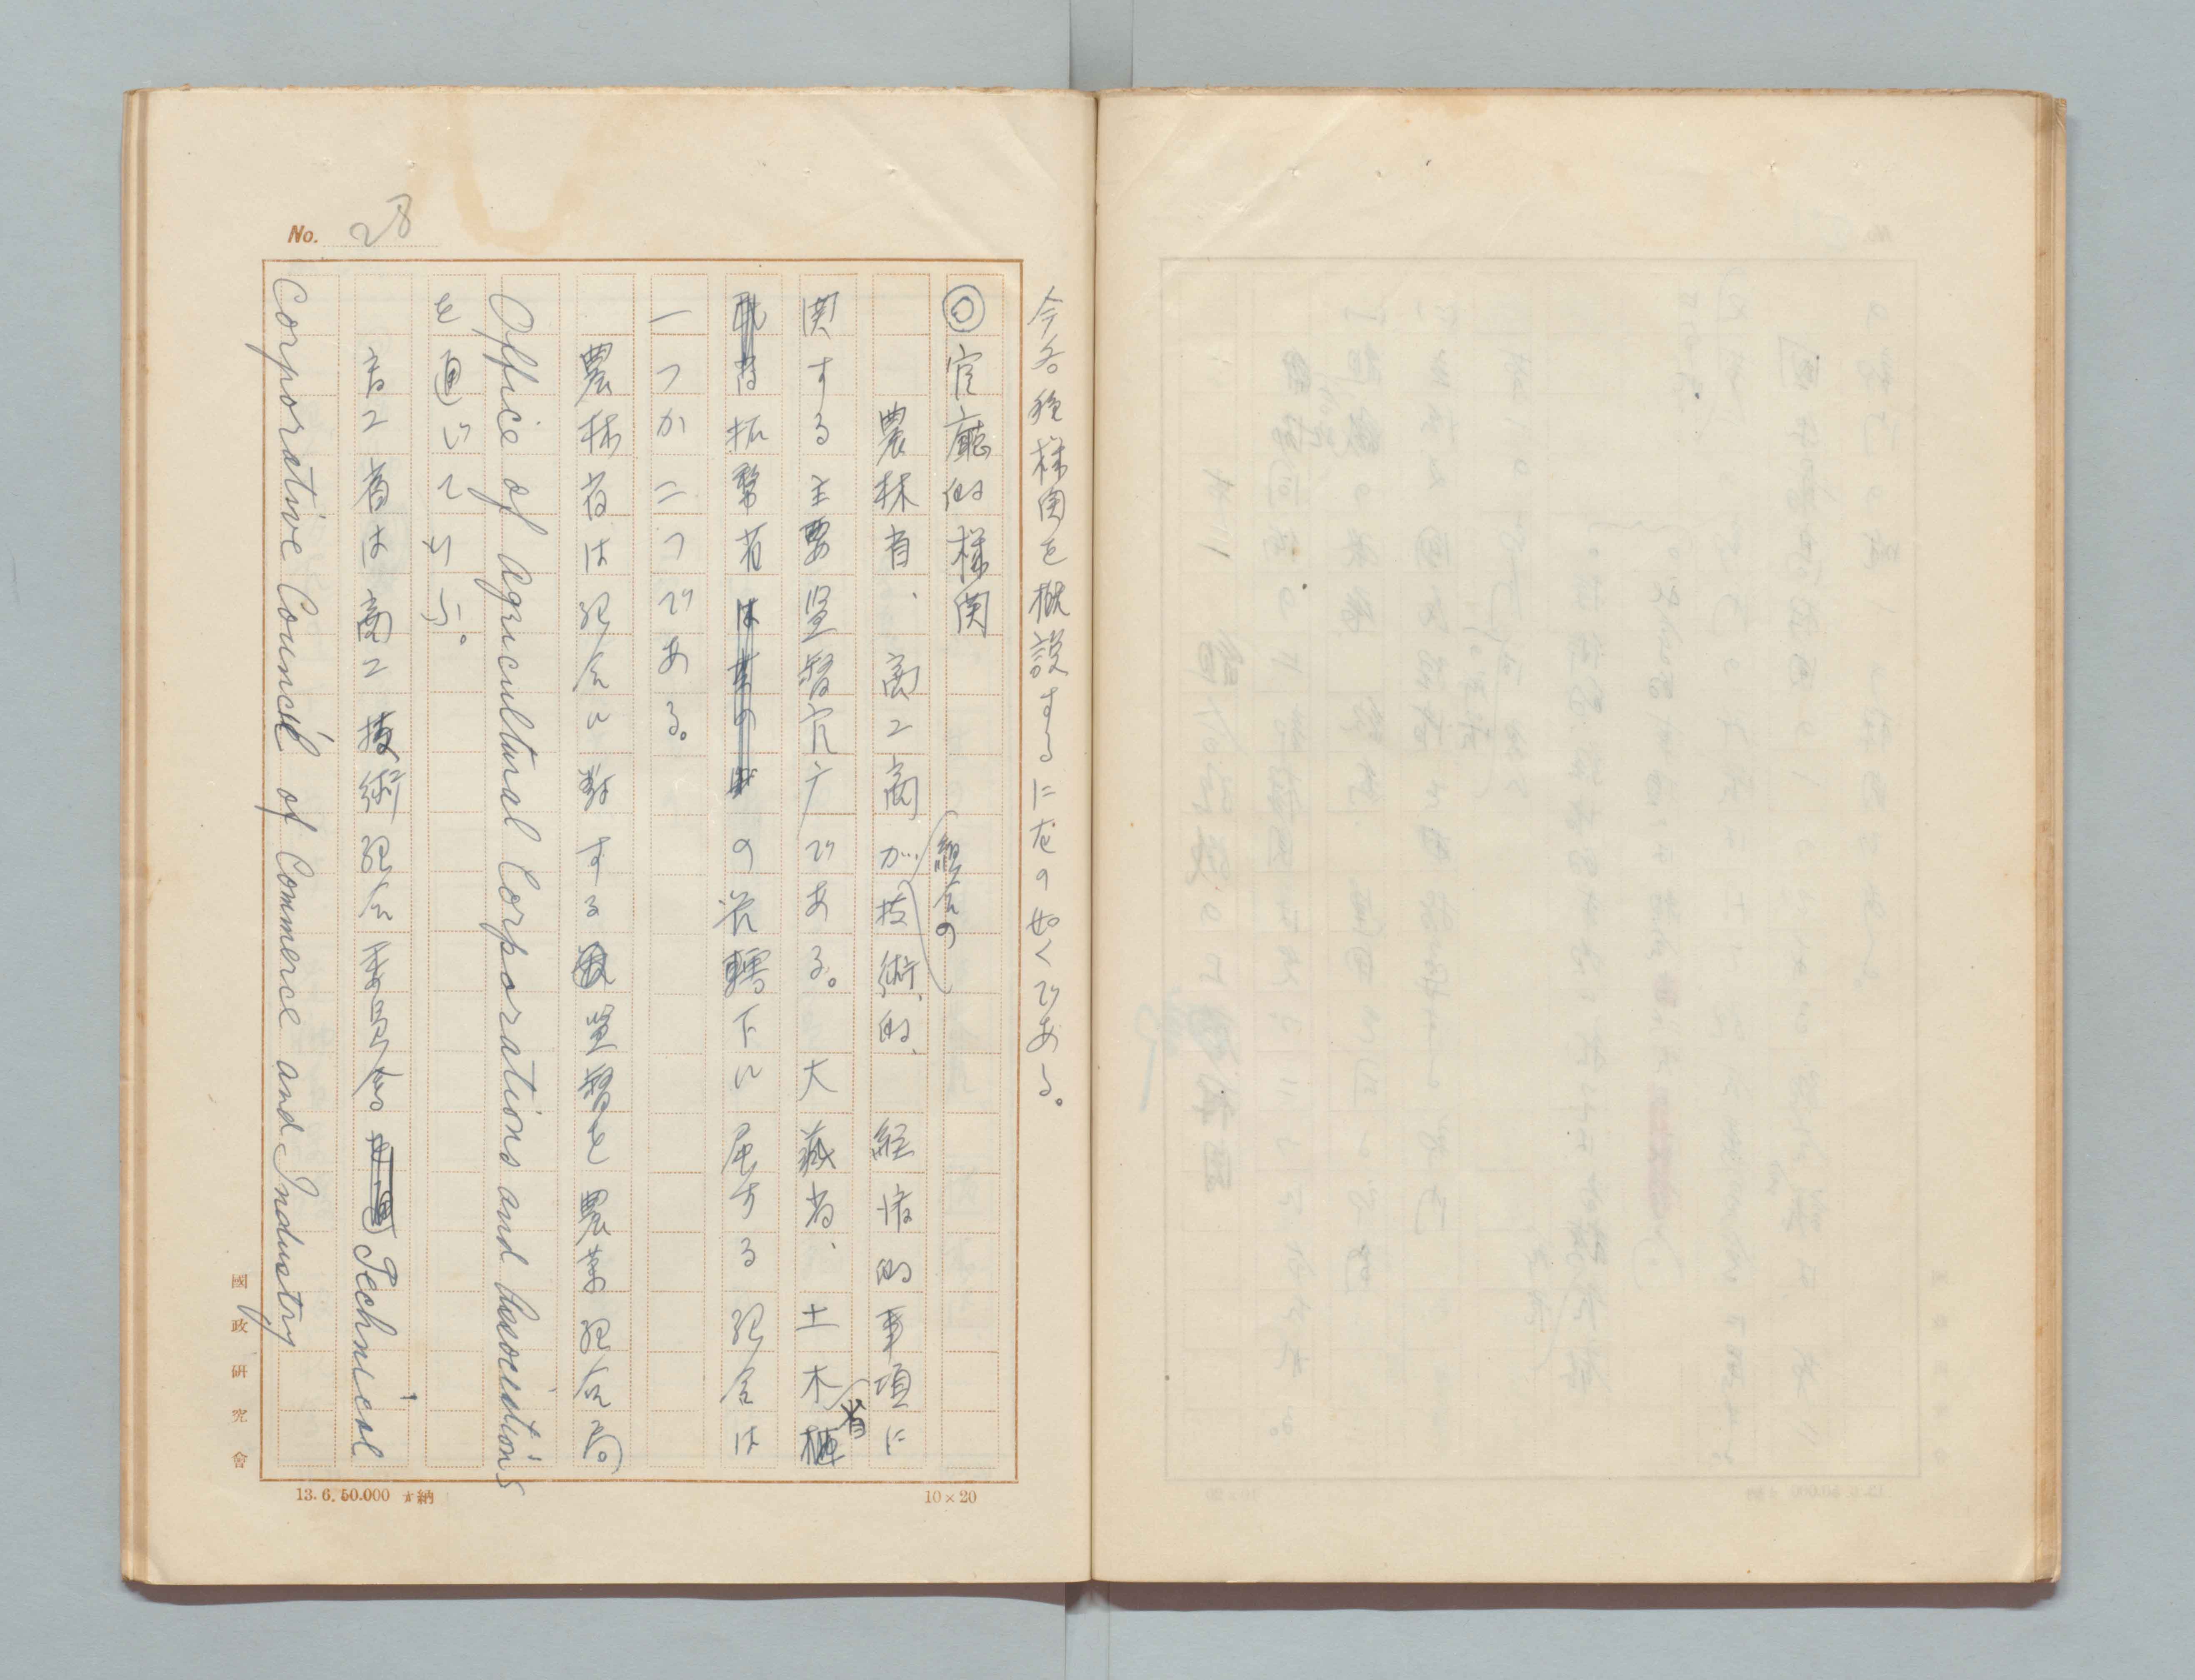 No. 28
今各種機関を概説するに左の如くである。
◎官廳的機関
農林省、商工省が組合の技術的、経済的事項に
関する主要監督官庁である。大蔵省、土木省
拓務省の管轄下に属する組合は
一つか二つである。
農林省は組合に対する監督を農業組合局
Office of Agricultural Corporations and Associations
を通じて行う。
商工省は商工技術組合委員会 Technical
Corporative Council of Commerce and Industry
國政研究會
13. 6. 50.000 納
10×20